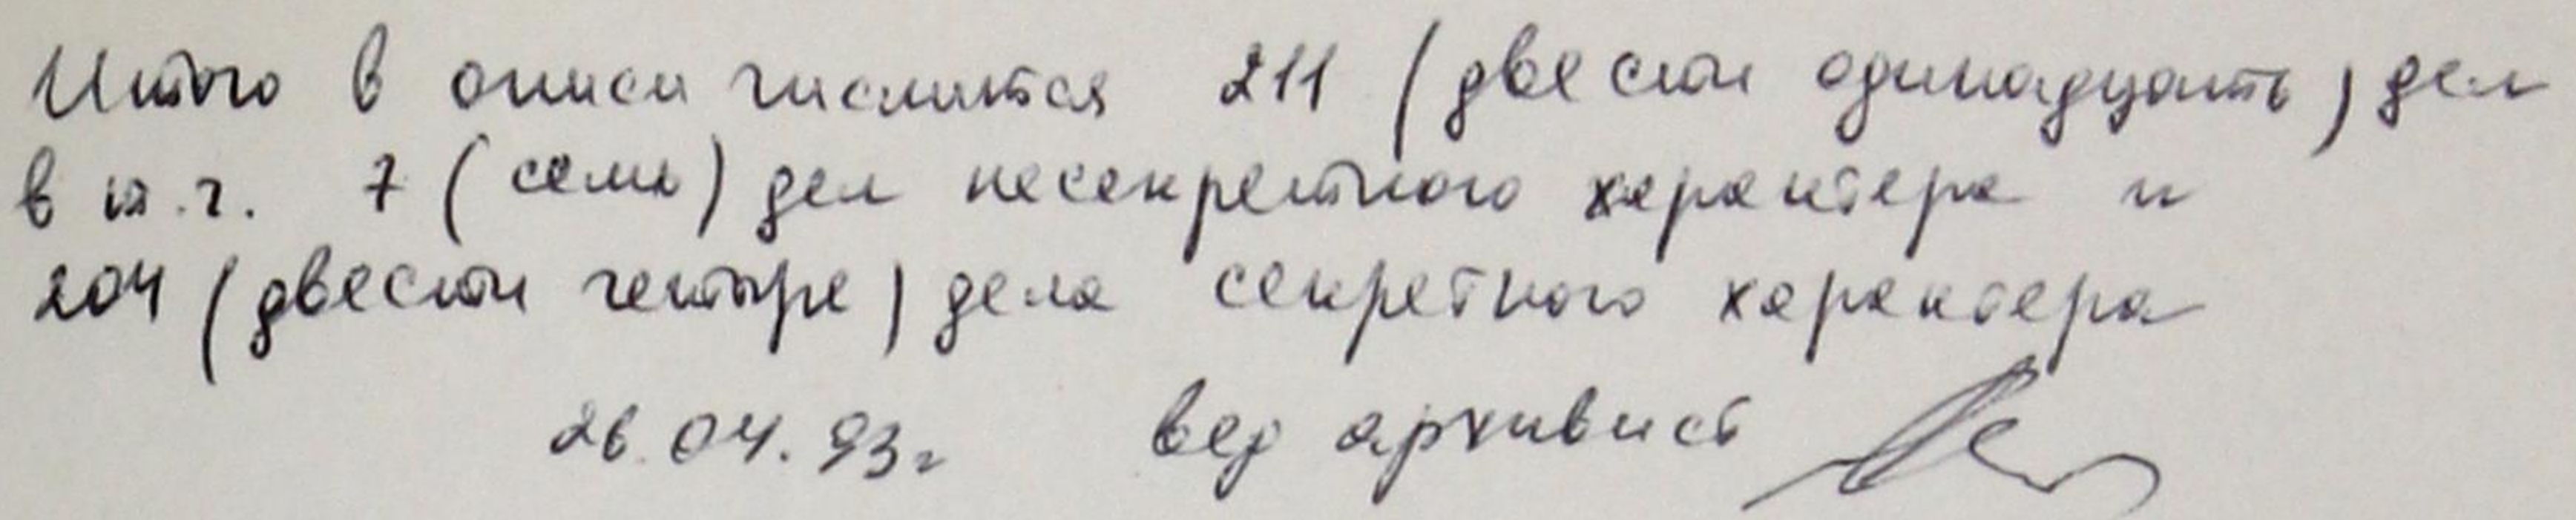 Итого в описи числится 211 (двести одинадцать) дел
в т.ч. 7 (семь) дел несекретного характера и
204 (двести четыре) дела секретного характера
26.04.93г вед архивист